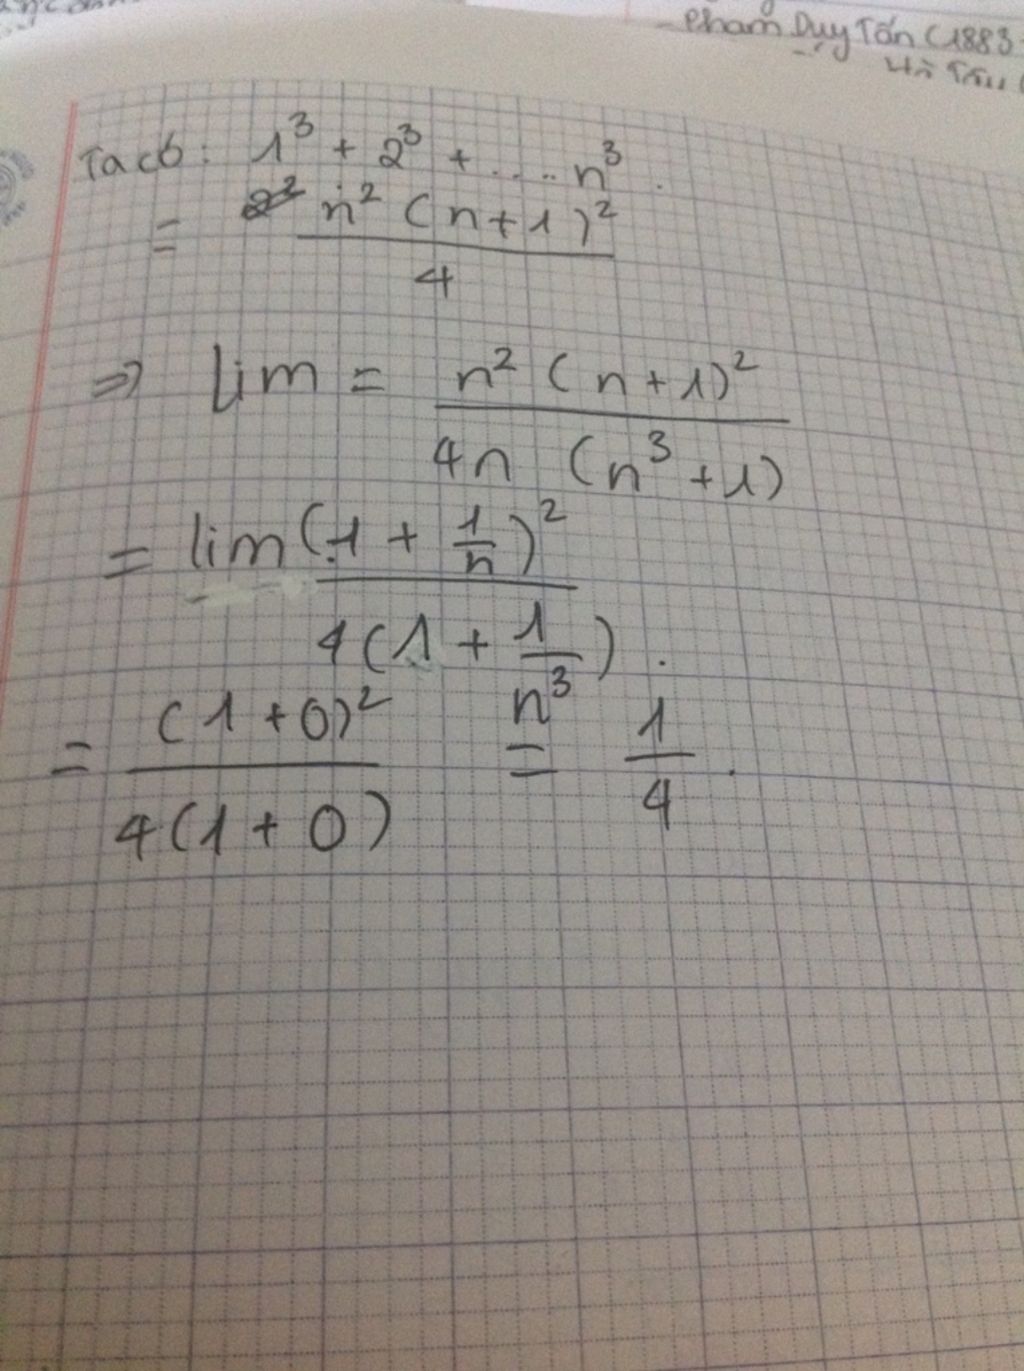 Phạm Duy Tốn (1883
Ta có: 1³ + 2³ + .... n³.
= n² (n+1)²
4
⇒ lim = n² (n+1)²
4n (n³+1)
= lim (1 + 1/n)²
4(1 + 1/n³).
= (1+0)² = 1/4.
4(1+0)